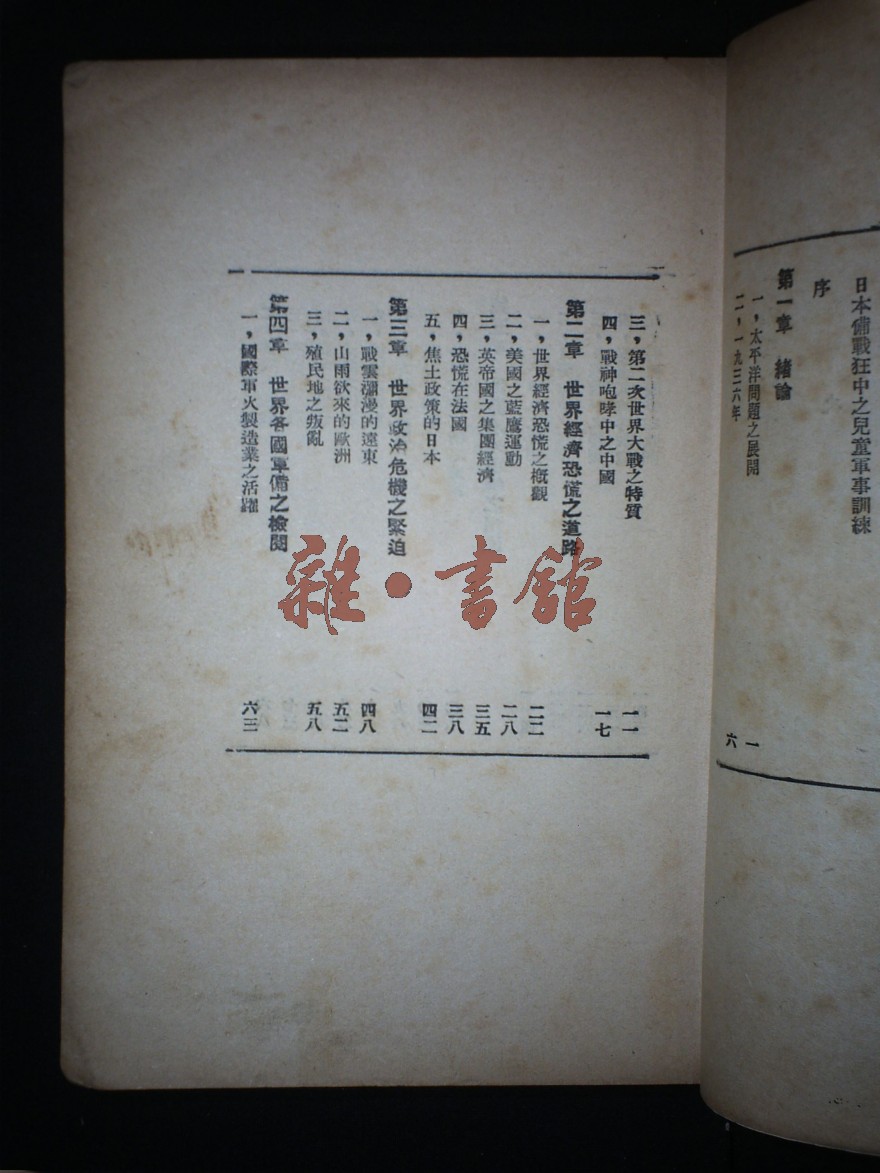 日本備戰狂中之兒童軍事訓練
序
第一章 緒論
一，太平洋問題之展開 一
二，一九三六年 六
三，第二次世界大戰之特質 一一
四，戰神咆哮中之中國 一七
第二章 世界經濟恐慌之道路
一，世界經濟恐慌之概觀 二二
二，美國之藍鷹運動 二八
三，英帝國之集團經濟 三五
四，恐慌在法國 三八
五，焦土政策的日本 四二
第三章 世界政治危機之緊迫
一，戰雲瀰漫的遠東 四八
二，山雨欲來的歐洲 五二
三，殖民地之叛亂 五八
第四章 世界各國軍備之檢閱
一，國際軍火製造業之活躍 六三
雜·書館